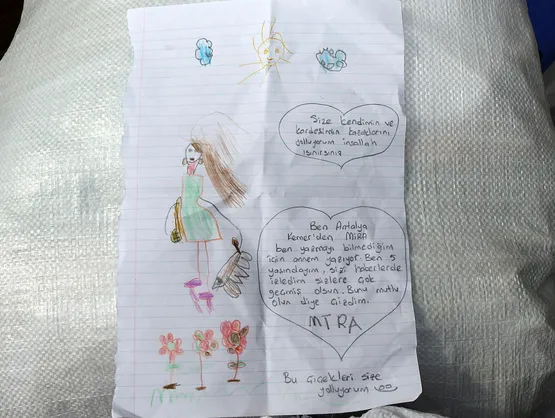 Size kendimin ve
kardeşimin kazaklarını
yolluyorum inşallah
ısınırsınız
Ben Antalya
Kemer'den MİRA
ben yazmayı bilmediğim
için annem yazıyor. Ben 5
yaşındayım, sizi haberlerde
izledim sizlere çok
geçmiş olsun. Bunu mutlu
olun diye çizdim.
MİRA
Bu çiçekleri size
yolluyorum